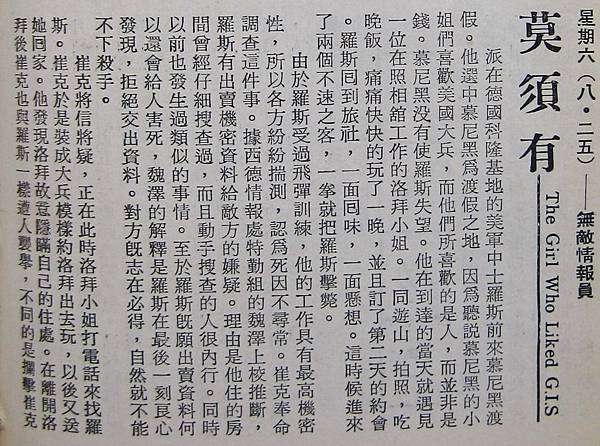 星期六（八·二五）——無敵情報員
莫須有 The Girl Who Liked G.I.S
派在德國科隆基地的美軍中士羅斯前來慕尼黑渡
假。他選中慕尼黑為渡假之地，因為聽説慕尼黑的小
姐們喜歡美國大兵，而他們所喜歡的是人，而並非是
錢。慕尼黑没有使羅斯失望。他在到達的當天就遇見
一位在照相舘工作的洛拜小姐。一同遊山，拍照，吃
晚飯，痛痛快快的玩了一晚，並且訂了第二天的約會
。羅斯囘到旅社，一面囘味，一面懸想。這時候進來
了兩個不速之客，一拳就把羅斯擊斃。
由於羅斯受過飛彈訓練，他的工作具有最高機密
性，所以各方紛紛揣測，認為死因不尋常。崔克奉命
調查這件事。據西德情報處特勤組的魏澤上校推斷，
羅斯有出賣機密資料給敵方的嫌疑。理由是他住的房
間曾經仔細搜查過，而且動手搜查的人很内行。同時
以前也發生過類似的事情。至於羅斯旣願出賣資料何
以還會給人害死，魏澤的解釋是羅斯在最後一刻良心
發現，拒絕交出資料。對方旣志在必得，自然就不能
不下殺手。
崔克將信將疑，正在此時洛拜小姐打電話來找羅
斯。崔克於是裝成大兵模樣約洛拜出去玩，以後又送
她囘家。他發現洛拜故意隱瞞自己的住處。在離開洛
拜後崔克也與羅斯一樣遭人襲擊，不同的是攔擊崔克